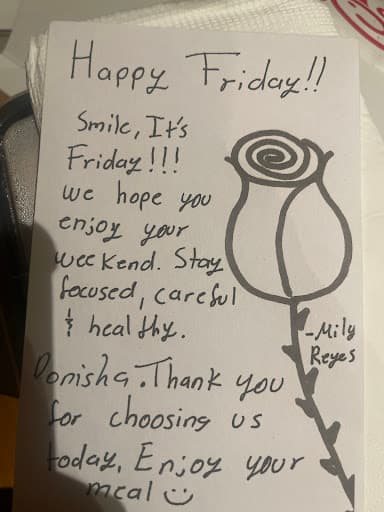 Happy Friday!!
Smile, It's
Friday!!!
we hope you
enjoy your
weekend. Stay
focused, careful
& healthy.
-Mily
Reyes
Donisha. Thank you
for choosing us
today. Enjoy your
meal